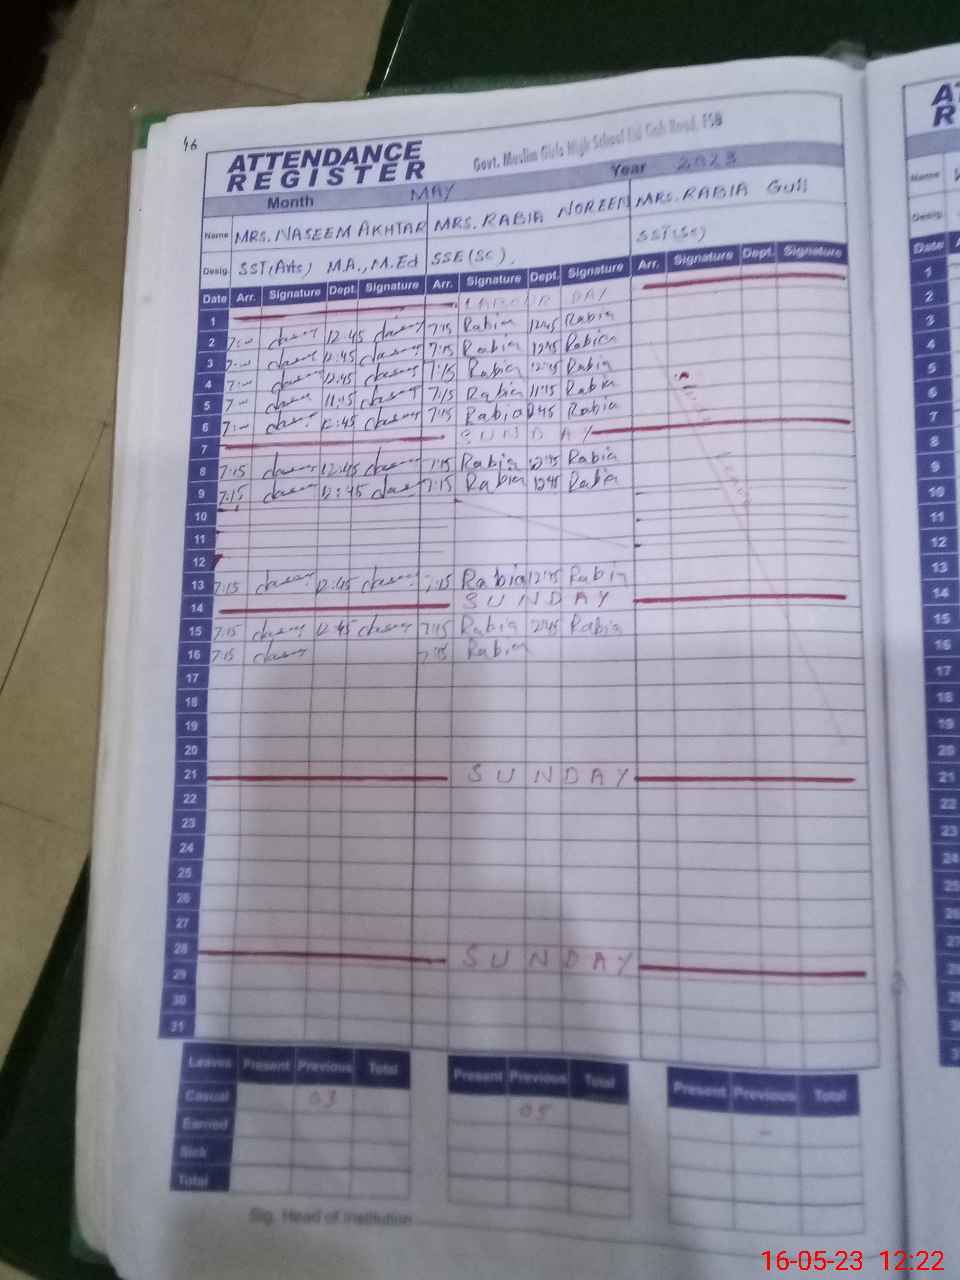 46
ATTENDANCE
REGISTER
Govt. Muslim Girls High School Road, FSB
Month MAY Year 2023
Name MRS. NASEEM AKHTAR MRS. RABIA NOREEN MRS. RABIA Gull
Desig. SST(Arts) M.A., M.Ed SSE(SC), SST(SC)
Date Arr. Signature Dept. Signature Arr. Signature Dept. Signature Arr. Signature Dept. Signature
1 LABOUR DAY
2 12:45 7:15 Rabia 12:45 Rabia
3 12:45 7:15 Rabia 12:45 Rabia
4 12:45 7:15 Rabia 12:45 Rabia
5 11:15 7:15 Rabia 11:15 Rabia
6 12:45 7:15 Rabia 12:45 Rabia
7 SUNDAY
8 7:15 12:45 7:15 Rabia 12:45 Rabia
9 7:15 12:45 7:15 Rabia 12:45 Rabia
10
11
12
13 7:15 12:45 7:15 Rabia 12:45 Rabia
14 SUNDAY
15 7:15 12:45 7:15 Rabia 12:45 Rabia
16 7:15 7:15 Rabia
17
18
19
20
21 SUNDAY
22
23
24
25
26
27
28 SUNDAY
29
30
31
Leaves Present Previous Total Present Previous Total Present Previous Total
Casual 03 05 -
Earned
Sick
Total
Sig. Head of Institution
A
R
Name
Desig.
Date A
1
2
3
4
5
6
7
8
9
10
11
12
13
14
15
16
17
18
19
20
21
22
23
24
25
26
27
16-05-23 12:22